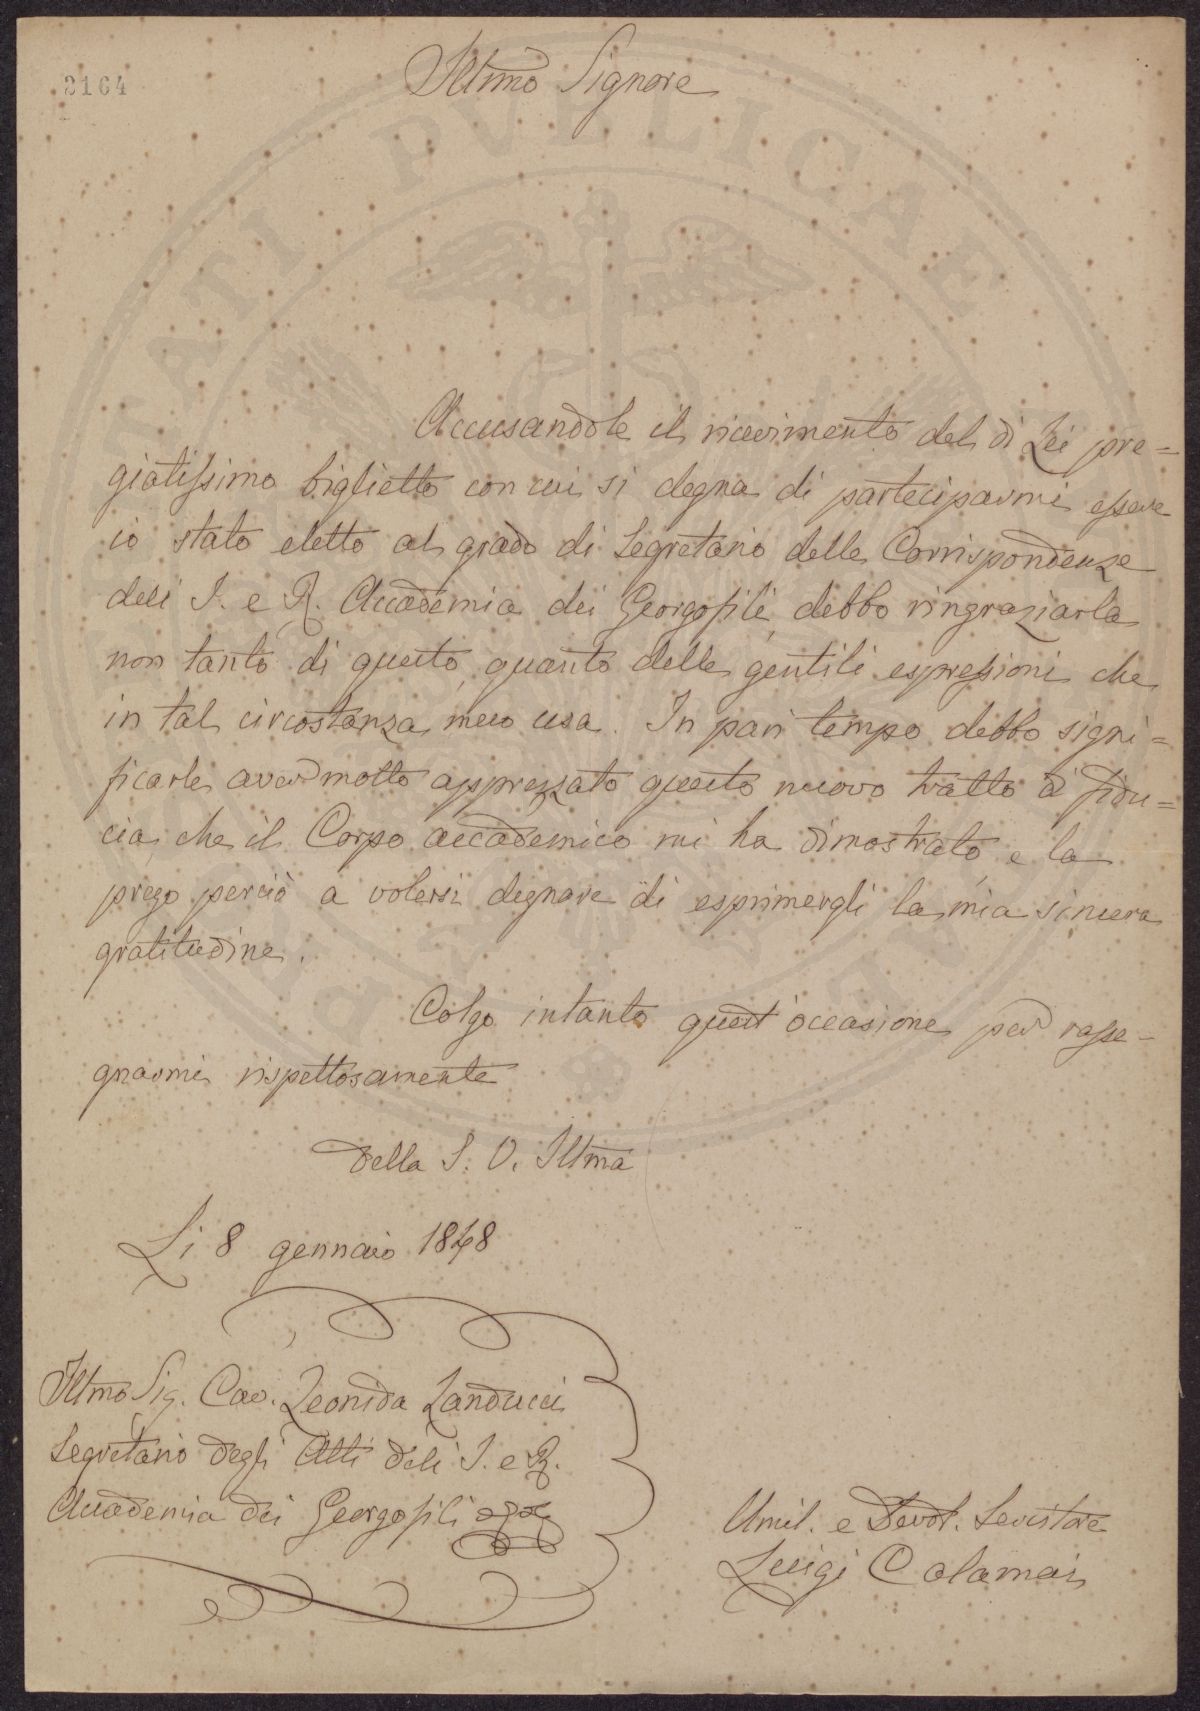 2164
Illmo Signore
Accusandole il ricevimento del di Lei pre=
giatissimo biglietto con cui si degna di parteciparmi essere
io stato eletto al grado di Segretario delle Corrispondenze
dell I. e R. Accademia dei Georgofili, debbo ringraziarla
non tanto di questo, quanto delle gentili espressioni che
in tal circostanza meco usa. In pari tempo debbo signi=
ficarle aver molto apprezzato questo nuovo tratto di fidu=
cia, che il Corpo accademico mi ha dimostrato, e la
prego perciò a volersi degnare di esprimergli la mia sincera
gratitudine.
Colgo intanto quest'occasione per rasse=
gnarmi rispettosamente
Della S. V. Illma
Li 8 gennaio 1848
Illmo Sig. Cav. Leonida Landucci
Segretario degli Atti dell I. e R.
Accademia dei Georgofili
Umil. e Devot. Servitore
Luigi Calamai
PVBLICAE